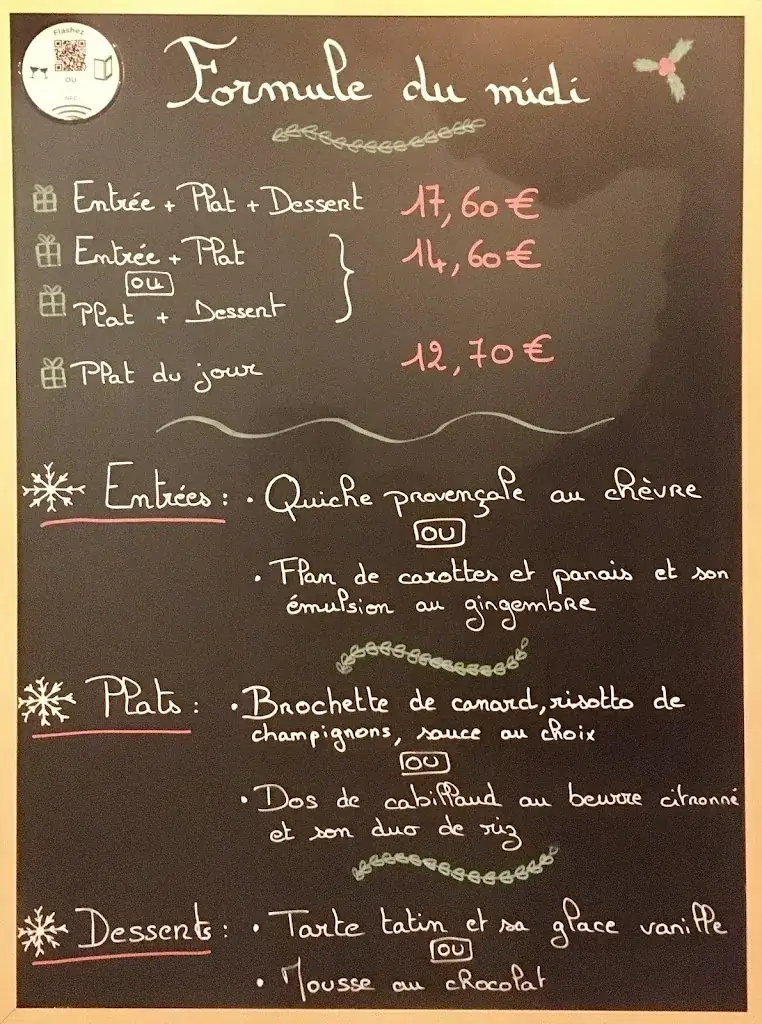 Flashez
OU
NFC
Formule du midi
Entrée + Plat + Dessert 17,60€
Entrée + Plat 14,60€
OU
Plat + Dessert
Plat du jour 12,70€
Entrées : • Quiche provençale au chèvre
OU
• Flan de carottes et panais et son
émulsion au gingembre
Plats : • Brochette de canard, risotto de
champignons, sauce au choix
OU
• Dos de cabillaud au beurre citronné
et son duo de riz
Desserts : • Tarte tatin et sa glace vanille
OU
• Mousse au chocolat